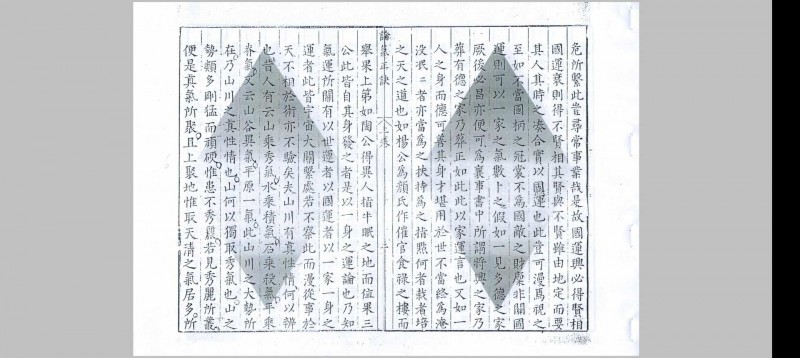 危所繫此豈尋常事業哉是故國運興必得賢相
國運衰則得不賢相其賢與不賢雖由地定而要
其人其時之泰合實以國運也此豈可漫焉視之
至如不當圖柄之冠裳不為國敵之財糜非關國
運則可以一家之氣數卜之假如一見多德之家
厥後必昌亦便可為襄事書中所謂將興之家乃
葬有德之家乃葬正如此此以家運言也又如一
人之身而德可善其身才堪用於世不當終為淹
沒泯泯者亦當為之扶持為之指點何者栽者培
之天之道也如楊公為顏氏作催官食祿之樓而
論氣正訣
上卷
二
舉果上第如陶公得異人指牛眠之地而位果三
公此皆自其身發之者是以一身之運論也乃知
氣運所關有以世運者以國運者以一家一身之
運者此皆宇宙大關繫處若不察此而漫從事於
天不相於術亦不驗矣夫山川有真性情何以辨
也昔人有云山乘秀氣水乘積氣石乘殺氣平乘
春氣又云山谷異氣平原一氣此山川之大勢所
在乃山川之真性情也山何以獨取秀氣也山之
勢類多剛猛而頑硬惟患不秀麗若見秀麗所叢
便是真氣所聚且上聚地惟取天清之氣居多所